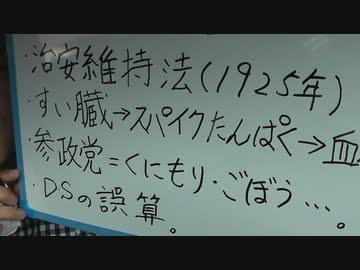 ・治安維持法(1925年)
・すい臓→スパイクたんぱく→血
・参政党=くにもり・ごぼう…。
・DSの誤算。